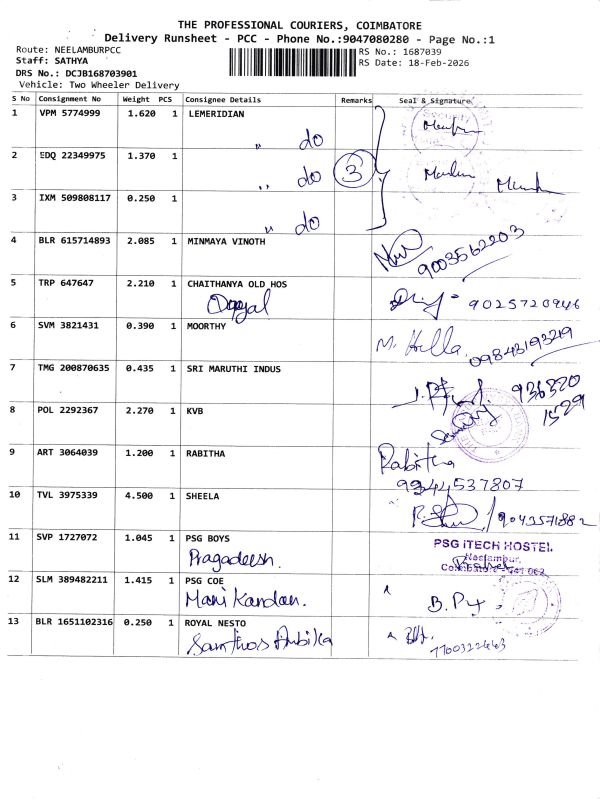 THE PROFESSIONAL COURIERS, COIMBATORE
Delivery Runsheet - PCC - Phone No.:9047080280 - Page No.:1
Route: NEELAMBURPCC
RS No.: 1687039
Staff: SATHYA
RS Date: 18-Feb-2026
DRS No.: DCJB168703901
Vehicle: Two Wheeler Delivery
S No Consignment No Weight PCS Consignee Details Remarks Seal & Signature
1 VPM 5774999 1.620 1 LEMERIDIAN
" do
2 EDQ 22349975 1.370 1
,, do 3
3 IXM 509808117 0.250 1
" do
4 BLR 615714893 2.085 1 MINMAYA VINOTH
9003562203
5 TRP 647647 2.210 1 CHAITHANYA OLD HOS
9025720946
6 SVM 3821431 0.390 1 MOORTHY
09843193219
7 TMG 200870635 0.435 1 SRI MARUTHI INDUS
936320
1529
8 POL 2292367 2.270 1 KVB
9 ART 3064039 1.200 1 RABITHA
Rabitha
9344537807
10 TVL 3975339 4.500 1 SHEELA
9043571882
11 SVP 1727072 1.045 1 PSG BOYS
Pragadeesh.
PSG iTECH HOSTEL
Neelambur,
Coimbatore - 641 062
12 SLM 389482211 1.415 1 PSG COE
Mani Kandan.
13 BLR 1651102316 0.250 1 ROYAL NESTO
Santhos Ambika
7700322663